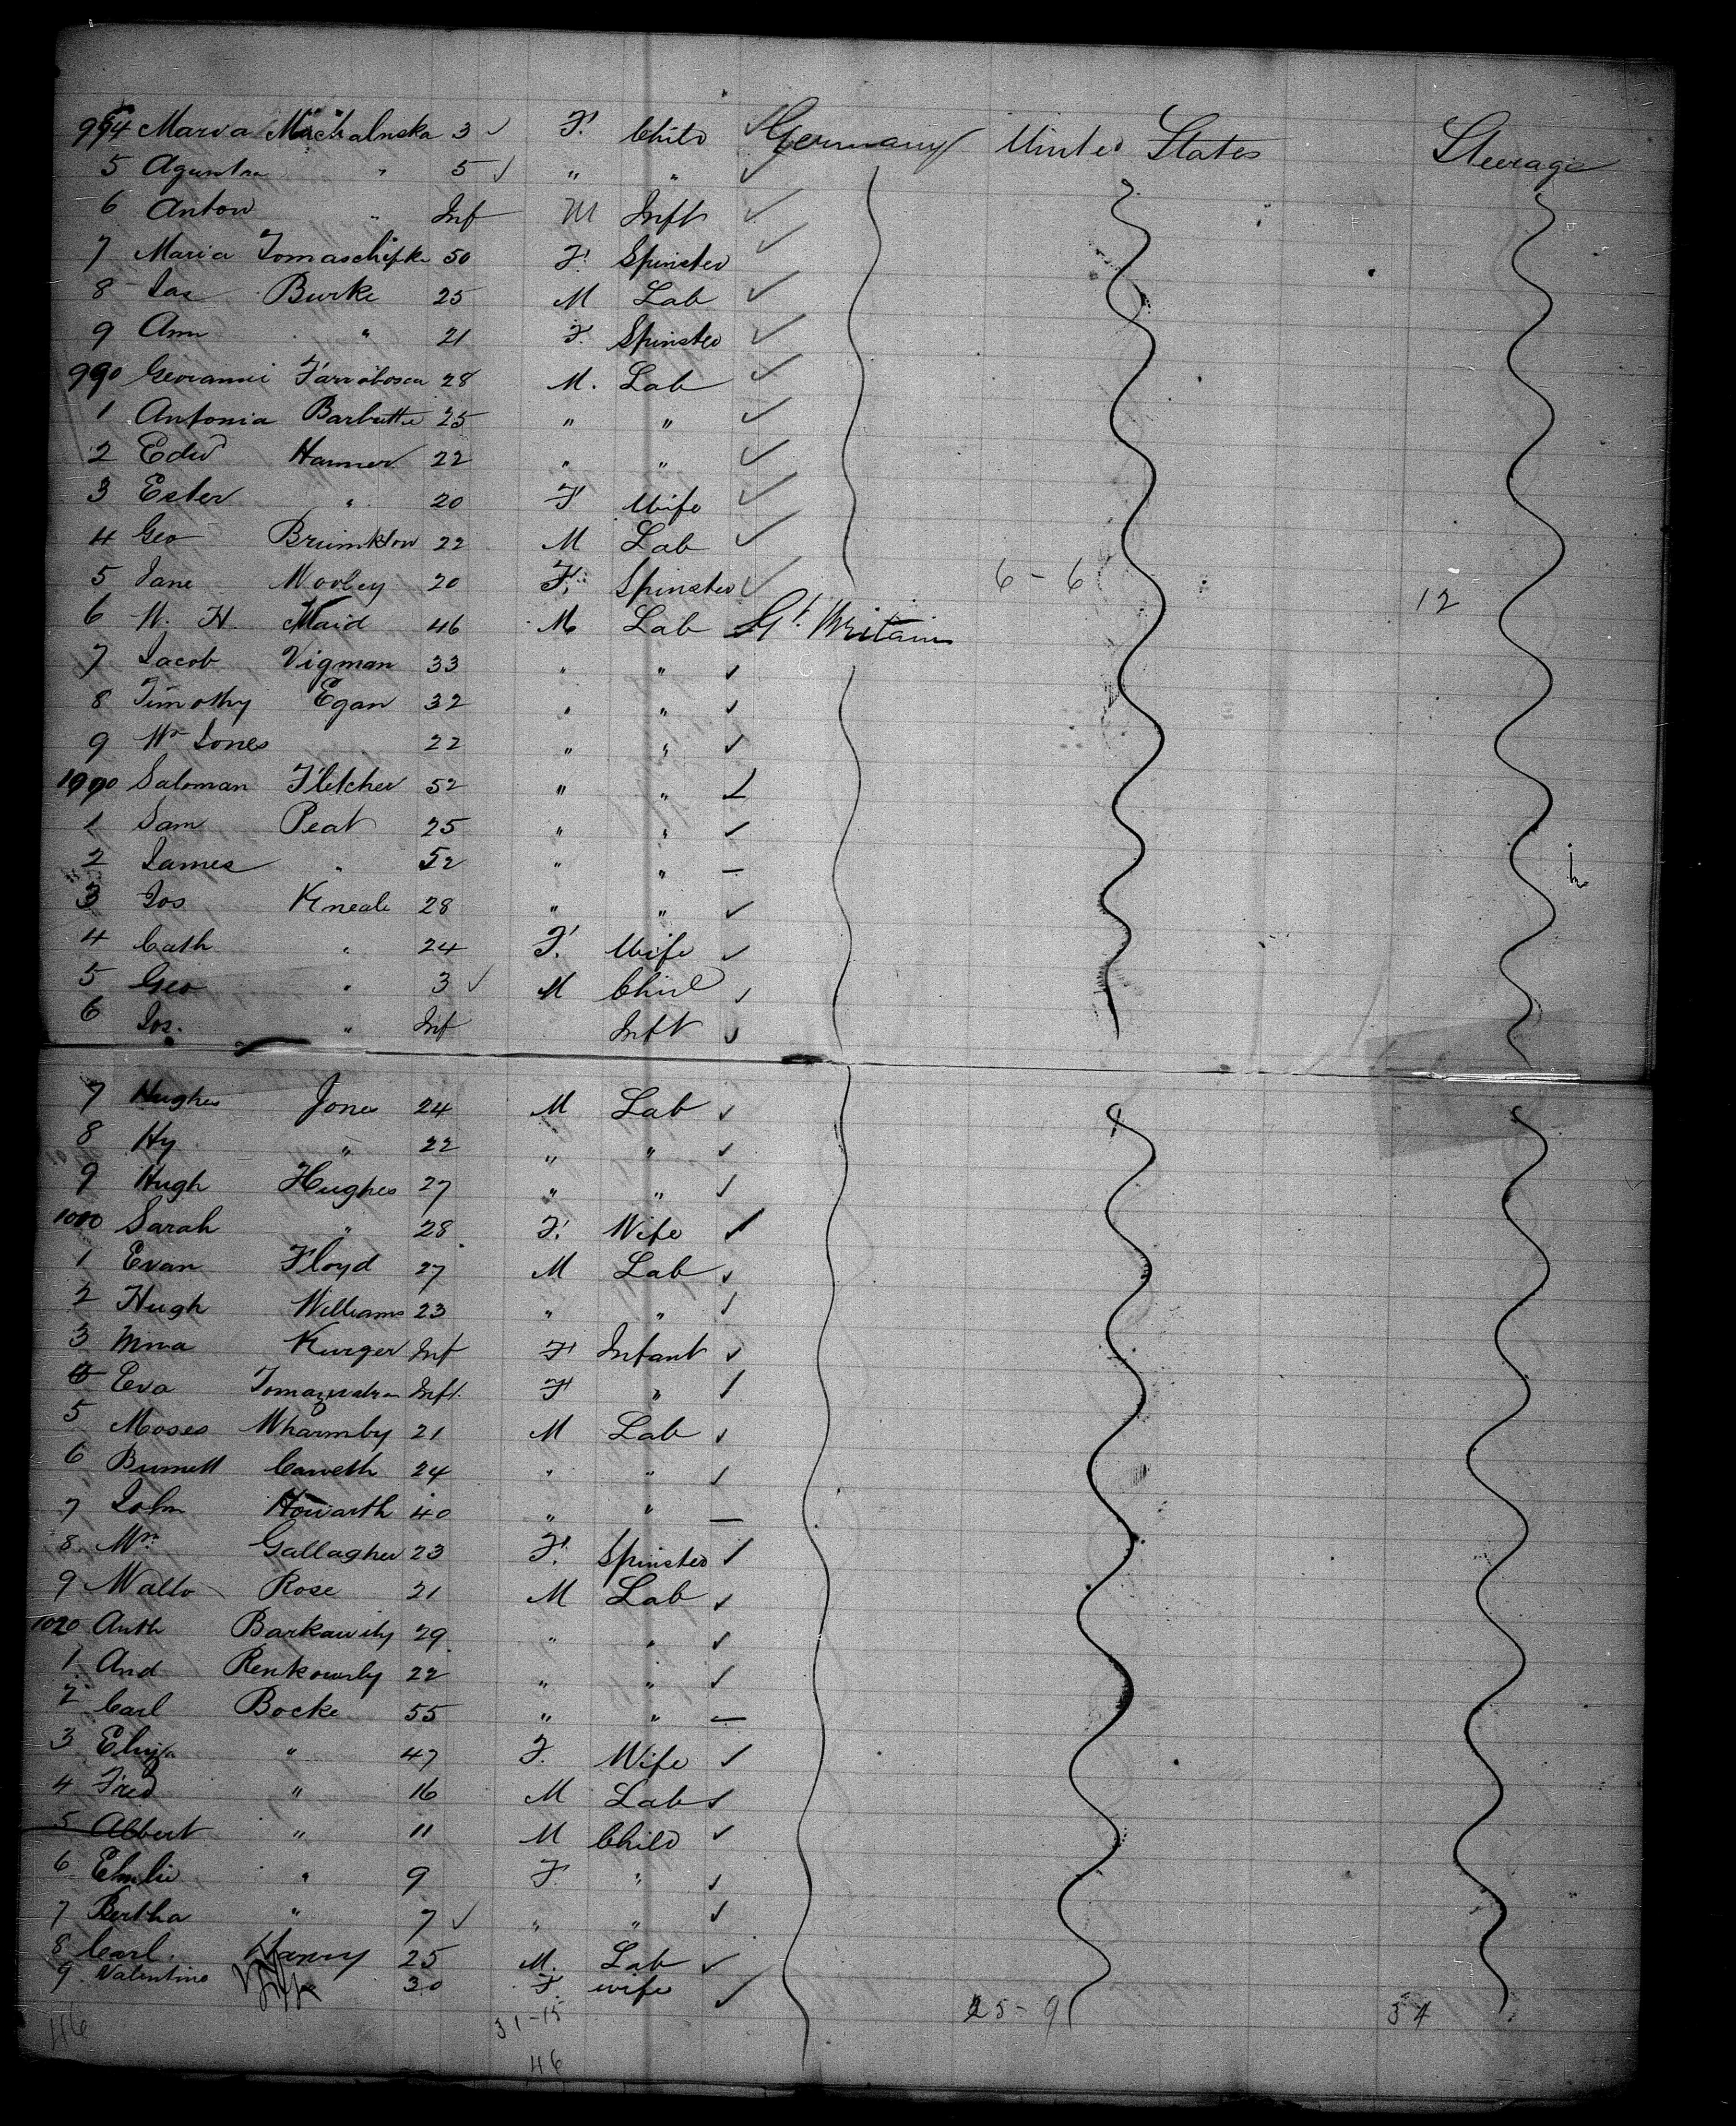 984 Maria Michalnska 3 ✓ F. Child ✓ Germany United States Steerage
5 " 5 ✓ " " ✓
6 Anton " Inf M Inft ✓
7 Maria Tomaschifke 50 F. Spinster ✓
8 Jas Burke 25 M Lab ✓
9 Ann " 21 F. Spinster ✓
990 28 M. Lab ✓
1 Antonia Barbutte 25 " " ✓
2 Edwd Hanner 22 " " ✓
3 Ester " 20 F Wife ✓
4 Geo 22 M Lab ✓
5 Jane Morley 20 F. Spinster ✓ 6 - 6 12
6 W. H. Maid 46 M Lab Gt. Britain
7 Jacob Vigman 33 " " ✓
8 Timothy Egan 32 " " ✓
9 Wm Jones 22 " " ✓
Saloman Fletcher 52 " " ✓
1 Sam Peat 25 " " ✓
2 James " 52 " " —
3 Jos Kneale 28 " " ✓
4 Cath " 24 F. Wife ✓
5 Geo " 3 ✓ M Child ✓
6 Jos. " Inf Inft ✓
7 Hughes Jones 24 M Lab ✓
8 Hy " 22 " " ✓
9 Hugh Hughes 27 " " ✓
1010 Sarah " 28 F. Wife ✓
1 Evan Floyd 27 M Lab ✓
2 Hugh Williams 23 " " ✓
3 Mina Kurger Inf F Infant ✓
Eva Inft. F " ✓
5 Moses Wharmby 21 M Lab ✓
6 Burnett Carveth 24 " " ✓
7 John Howarth 40 " " —
8 Mrs Gallagher 23 F. Spinster ✓
9 Walto Rose 21 M Lab ✓
1020 Anth 29 " " ✓
1 And 22 " " ✓
2 Carl Bocke 55 " " —
3 Eliza " 47 F. Wife ✓
4 Fred " 16 M Lab ✓
5 Albert " 11 M Child ✓
6 Emlie " 9 F " ✓
7 Bertha " 7 ✓ " " ✓
8 Carl Hanry 25 M. Lab ✓
9 Valentine 30 F. wife ✓
46 31-15 25-9 34
46